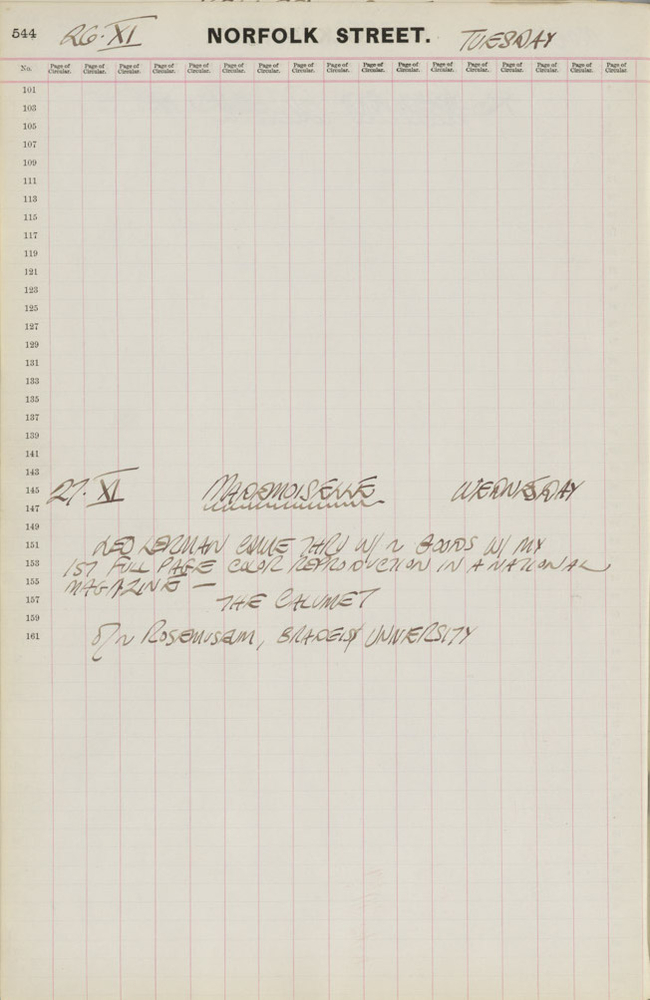 544 26·XI NORFOLK STREET. TUESDAY
No. Page of Circular. Page of Circular. Page of Circular. Page of Circular. Page of Circular. Page of Circular. Page of Circular. Page of Circular. Page of Circular. Page of Circular. Page of Circular. Page of Circular. Page of Circular. Page of Circular. Page of Circular. Page of Circular. Page of Circular.
101
103
105
107
109
111
113
115
117
119
121
123
125
127
129
131
133
135
137
139
141
143
145 27·XI MADEMOISELLE WEDNESDAY
147
149
151 LEO LERMAN CAME THRU W/ GOODS W/ MY
153 1ST FULL PAGE COLOR REPRODUCTION IN A NATIONAL
155 MAGAZINE —
157 THE CALUMET
159
161 ROSEMUSEUM, BRADEIS UNIVERSITY